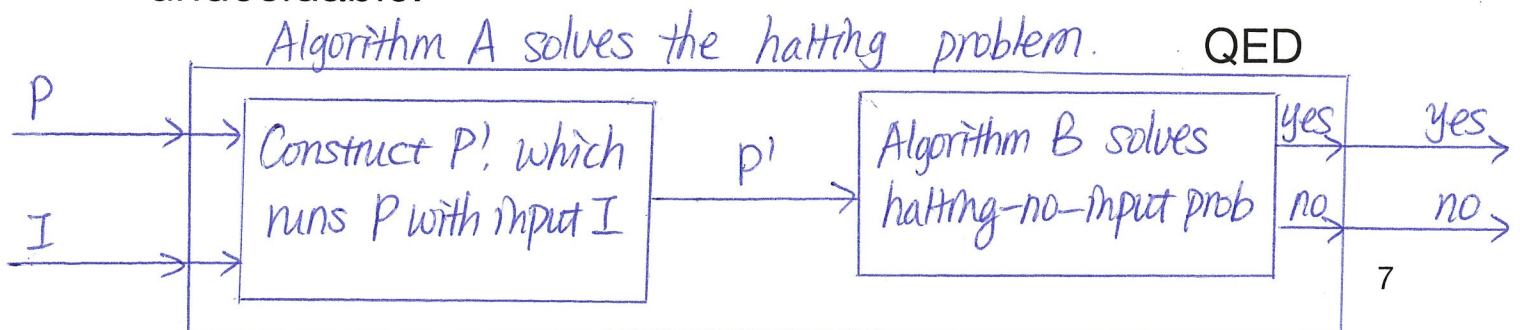 undecidable.
Algorithm A solves the halting problem. QED
P
Construct P', which
runs P with input I
P'
Algorithm B solves
halting-no-input prob
yes
yes
I
no
no
7